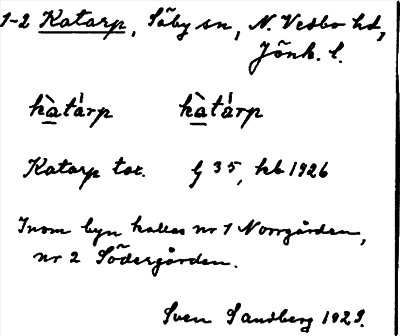 1-2 Katarp, Säby sn, N. Vedbo hd,
Jönk. l.
hàtárp hàtárp
Katarp tor. G 35, kb 1926
Inom byn kallas nr 1 Norrgården,
nr 2 Södergården.
Sven Sandberg 1929.